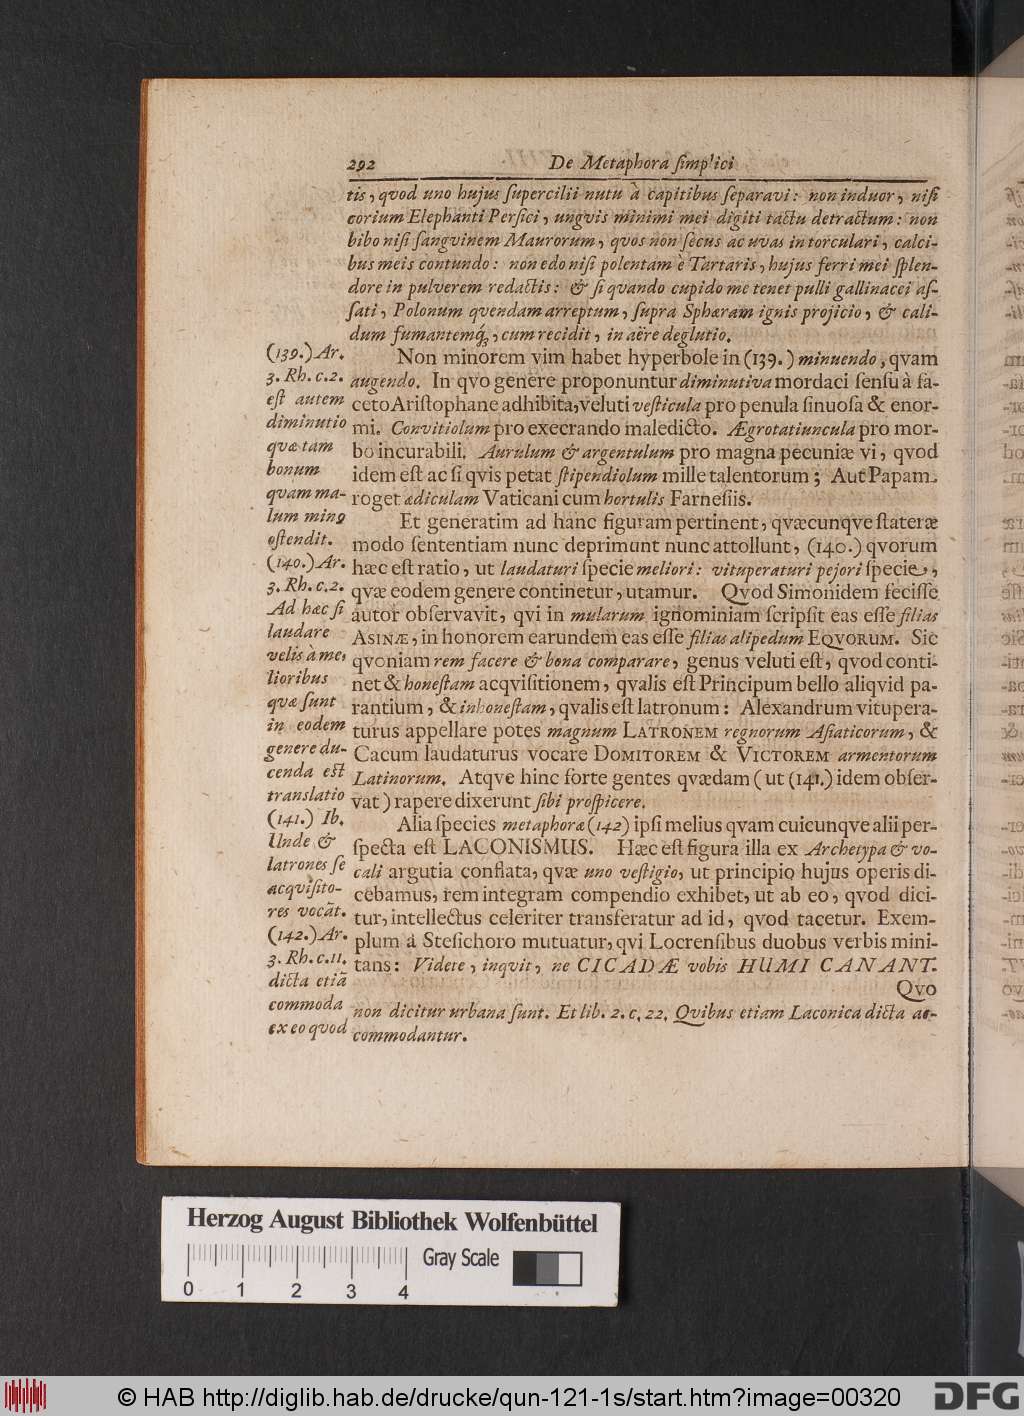 292 De Metaphora ſimplici
tis, qvod uno hujus ſupercilii nutu à capitibus ſeparavi: non induor, niſi
corium Elephanti Perſici, ungvis minimi mei digiti tactu detractum: non
bibo niſi ſangvinem Maurorum, qvos non ſecus ac uvas in torculari, calci-
bus meis contundo: non edo niſi polentam è Tartaris, hujus ferri mei ſplen-
dore in pulverem redactis: & ſi qvando cupido me tenet pulli gallinacei aſ-
ſati, Polonum qvendam arreptum, ſupra Sphæram ignis projicio, & cali-
dum fumantemq́;, cum recidit, in aëre deglutio.
Non minorem vim habet hyperbole in (139.) minuendo, qvam
augendo. In qvo genere proponuntur diminutiva mordaci ſenſu à fa-
ceto Ariſtophane adhibita, veluti veſticula pro penula ſinuoſa & enor-
mi. Convitiolum pro execrando maledicto. Ægrotatiuncula pro mor-
bo incurabili. Aurulum & argentulum pro magna pecuniæ vi, qvod
idem eſt ac ſi qvis petat ſtipendiolum mille talentorum; Aut Papam
roget ædiculam Vaticani cum hortulis Farneſiis.
Et generatim ad hanc figuram pertinent, qvæcunqve ſtateræ
modo ſententiam nunc deprimunt nunc attollunt, (140.) qvorum
hæc eſt ratio, ut laudaturi ſpecie meliori: vituperaturi pejori ſpecie,
qvæ eodem genere continetur, utamur. Qvod Simonidem feciſſe
autor obſervavit, qvi in mularum ignominiam ſcripſit eas eſſe filias
ASINÆ, in honorem earundem eas eſſe filias alipedum EQVORUM. Sic
qvoniam rem facere & bona comparare, genus veluti eſt, qvod conti-
net & honeſtam acqviſitionem, qvalis eſt Principum bello aliqvid pa-
rantium, & inhoneſtam, qvalis eſt latronum: Alexandrum vitupera-
turus appellare potes magnum LATRONEM regnorum Aſiaticorum, &
Cacum laudaturus vocare DOMITOREM & VICTOREM armentorum
Latinorum. Atqve hinc forte gentes qvædam (ut (141.) idem obſer-
vat) rapere dixerunt ſibi proſpicere.
Alia ſpecies metaphoræ (142) ipſi melius qvam cuicunqve alii per-
ſpecta eſt LACONISMUS. Hæc eſt figura illa ex Archetypa & vo-
cali argutia conflata, qvæ uno veſtigio, ut principio hujus operis di-
cebamus, rem integram compendio exhibet, ut ab eo, qvod dici-
tur, intellectus celeriter transferatur ad id, qvod tacetur. Exem-
plum à Steſichoro mutuatur, qvi Locrenſibus duobus verbis mini-
tans: Videte, inqvit, ne CICADÆ vobis HUMI CANANT.
Qvo
(139.) Ar.
3. Rh. c. 2.
eſt autem
diminutio
quæ tam
bonum
quam ma-
lum minꝰ
oſtendit.
(140.) Ar.
3. Rh. c. 2.
Ad hæc ſi
laudare
velis à me-
lioribus
quæ ſunt
in eodem
genere du-
cenda eſt
translatio
(141.) Ib.
Unde &
latrones ſe
acqviſito-
res vocãt.
(142.) Ar.
3. Rh. c. 11.
dicta etiã
commoda
ex eo quod
non dicitur urbana ſunt. Et lib. 2. c. 22. Quibus etiam Laconica dicta ac-
commodantur.
Herzog August Bibliothek Wolfenbüttel
Gray Scale
0 1 2 3 4
© HAB http://diglib.hab.de/drucke/qun-121-1s/start.htm?image=00320
DFG